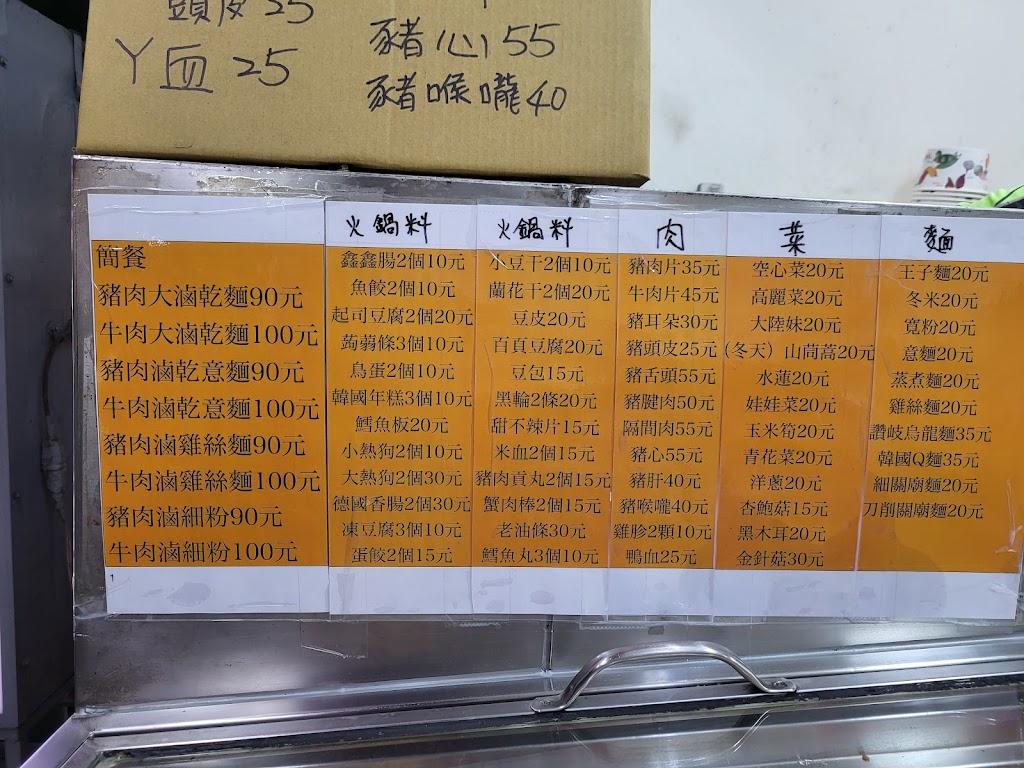 頭皮25
丫血25
豬心55
豬喉嚨40
簡餐
豬肉大滷乾麵90元
牛肉大滷乾麵100元
豬肉滷乾意麵90元
牛肉滷乾意麵100元
豬肉滷雞絲麵90元
牛肉滷雞絲麵100元
豬肉滷細粉90元
牛肉滷細粉100元
1
火鍋料
鑫鑫腸2個10元
魚餃2個10元
起司豆腐2個20元
蒟蒻條3個10元
鳥蛋2個10元
韓國年糕3個10元
鱈魚板20元
小熱狗2個10元
大熱狗2個30元
德國香腸2個30元
凍豆腐3個10元
蛋餃2個15元
火鍋料
小豆干2個10元
蘭花干2個20元
豆皮20元
百頁豆腐20元
豆包15元
黑輪2條20元
甜不辣片15元
米血2個15元
豬肉貢丸2個15元
蟹肉棒2個15元
老油條30元
鱈魚丸3個10元
肉
豬肉片35元
牛肉片45元
豬耳朵30元
豬頭皮25元
豬舌頭55元
豬腱肉50元
隔間肉55元
豬心55元
豬肝40元
豬喉嚨40元
雞胗2顆10元
鴨血25元
菜
空心菜20元
高麗菜20元
大陸妹20元
(冬天) 山茼蒿20元
水蓮20元
娃娃菜20元
玉米筍20元
青花菜20元
洋蔥20元
杏鮑菇15元
黑木耳20元
金針菇30元
麵
王子麵20元
冬米20元
寬粉20元
意麵20元
蒸煮麵20元
雞絲麵20元
讚岐烏龍麵35元
韓國Q麵35元
細關廟麵20元
刀削關廟麵20元